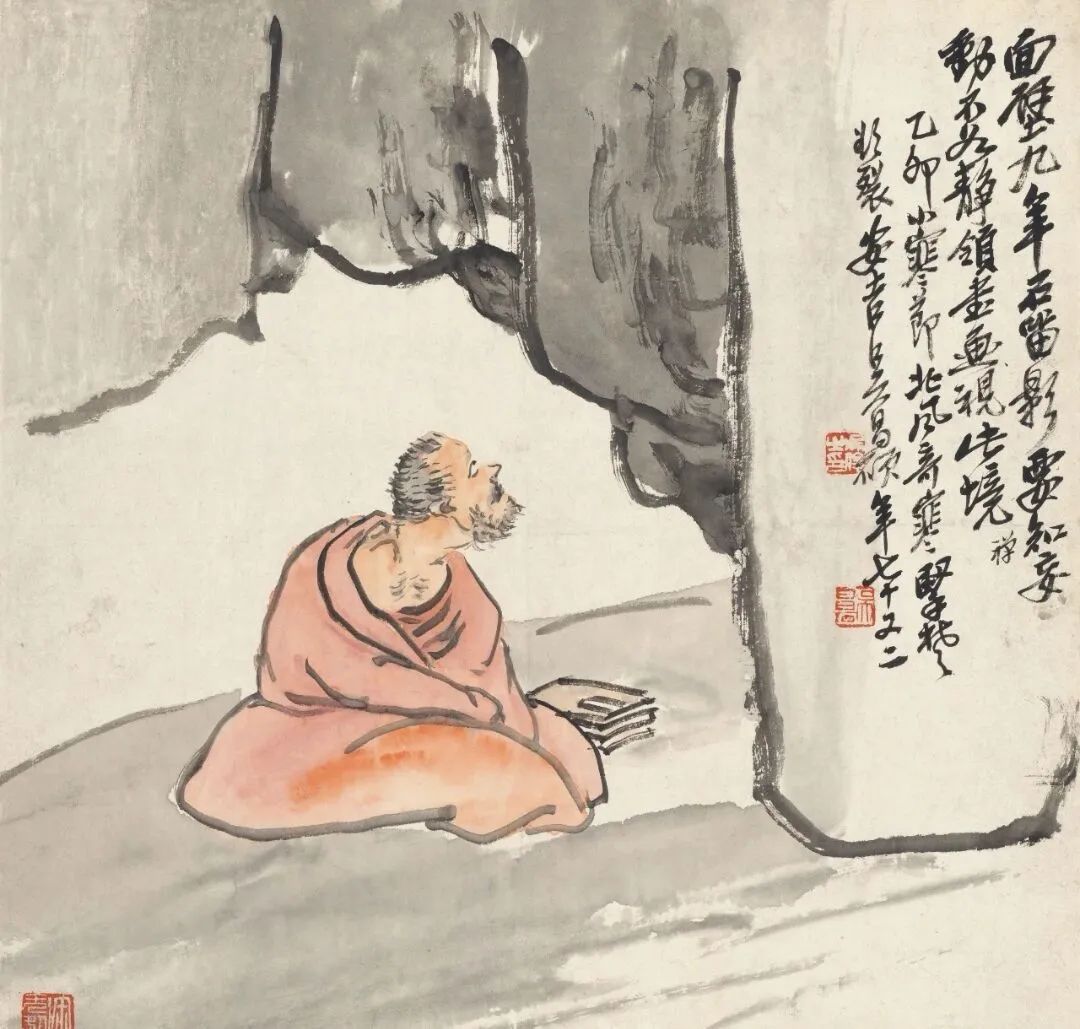 面壁九年石留影要知妄
動不如靜領書畫視此境
禪
乙卯小寒節北風奇寒
裂安吉吳昌碩年七十又二